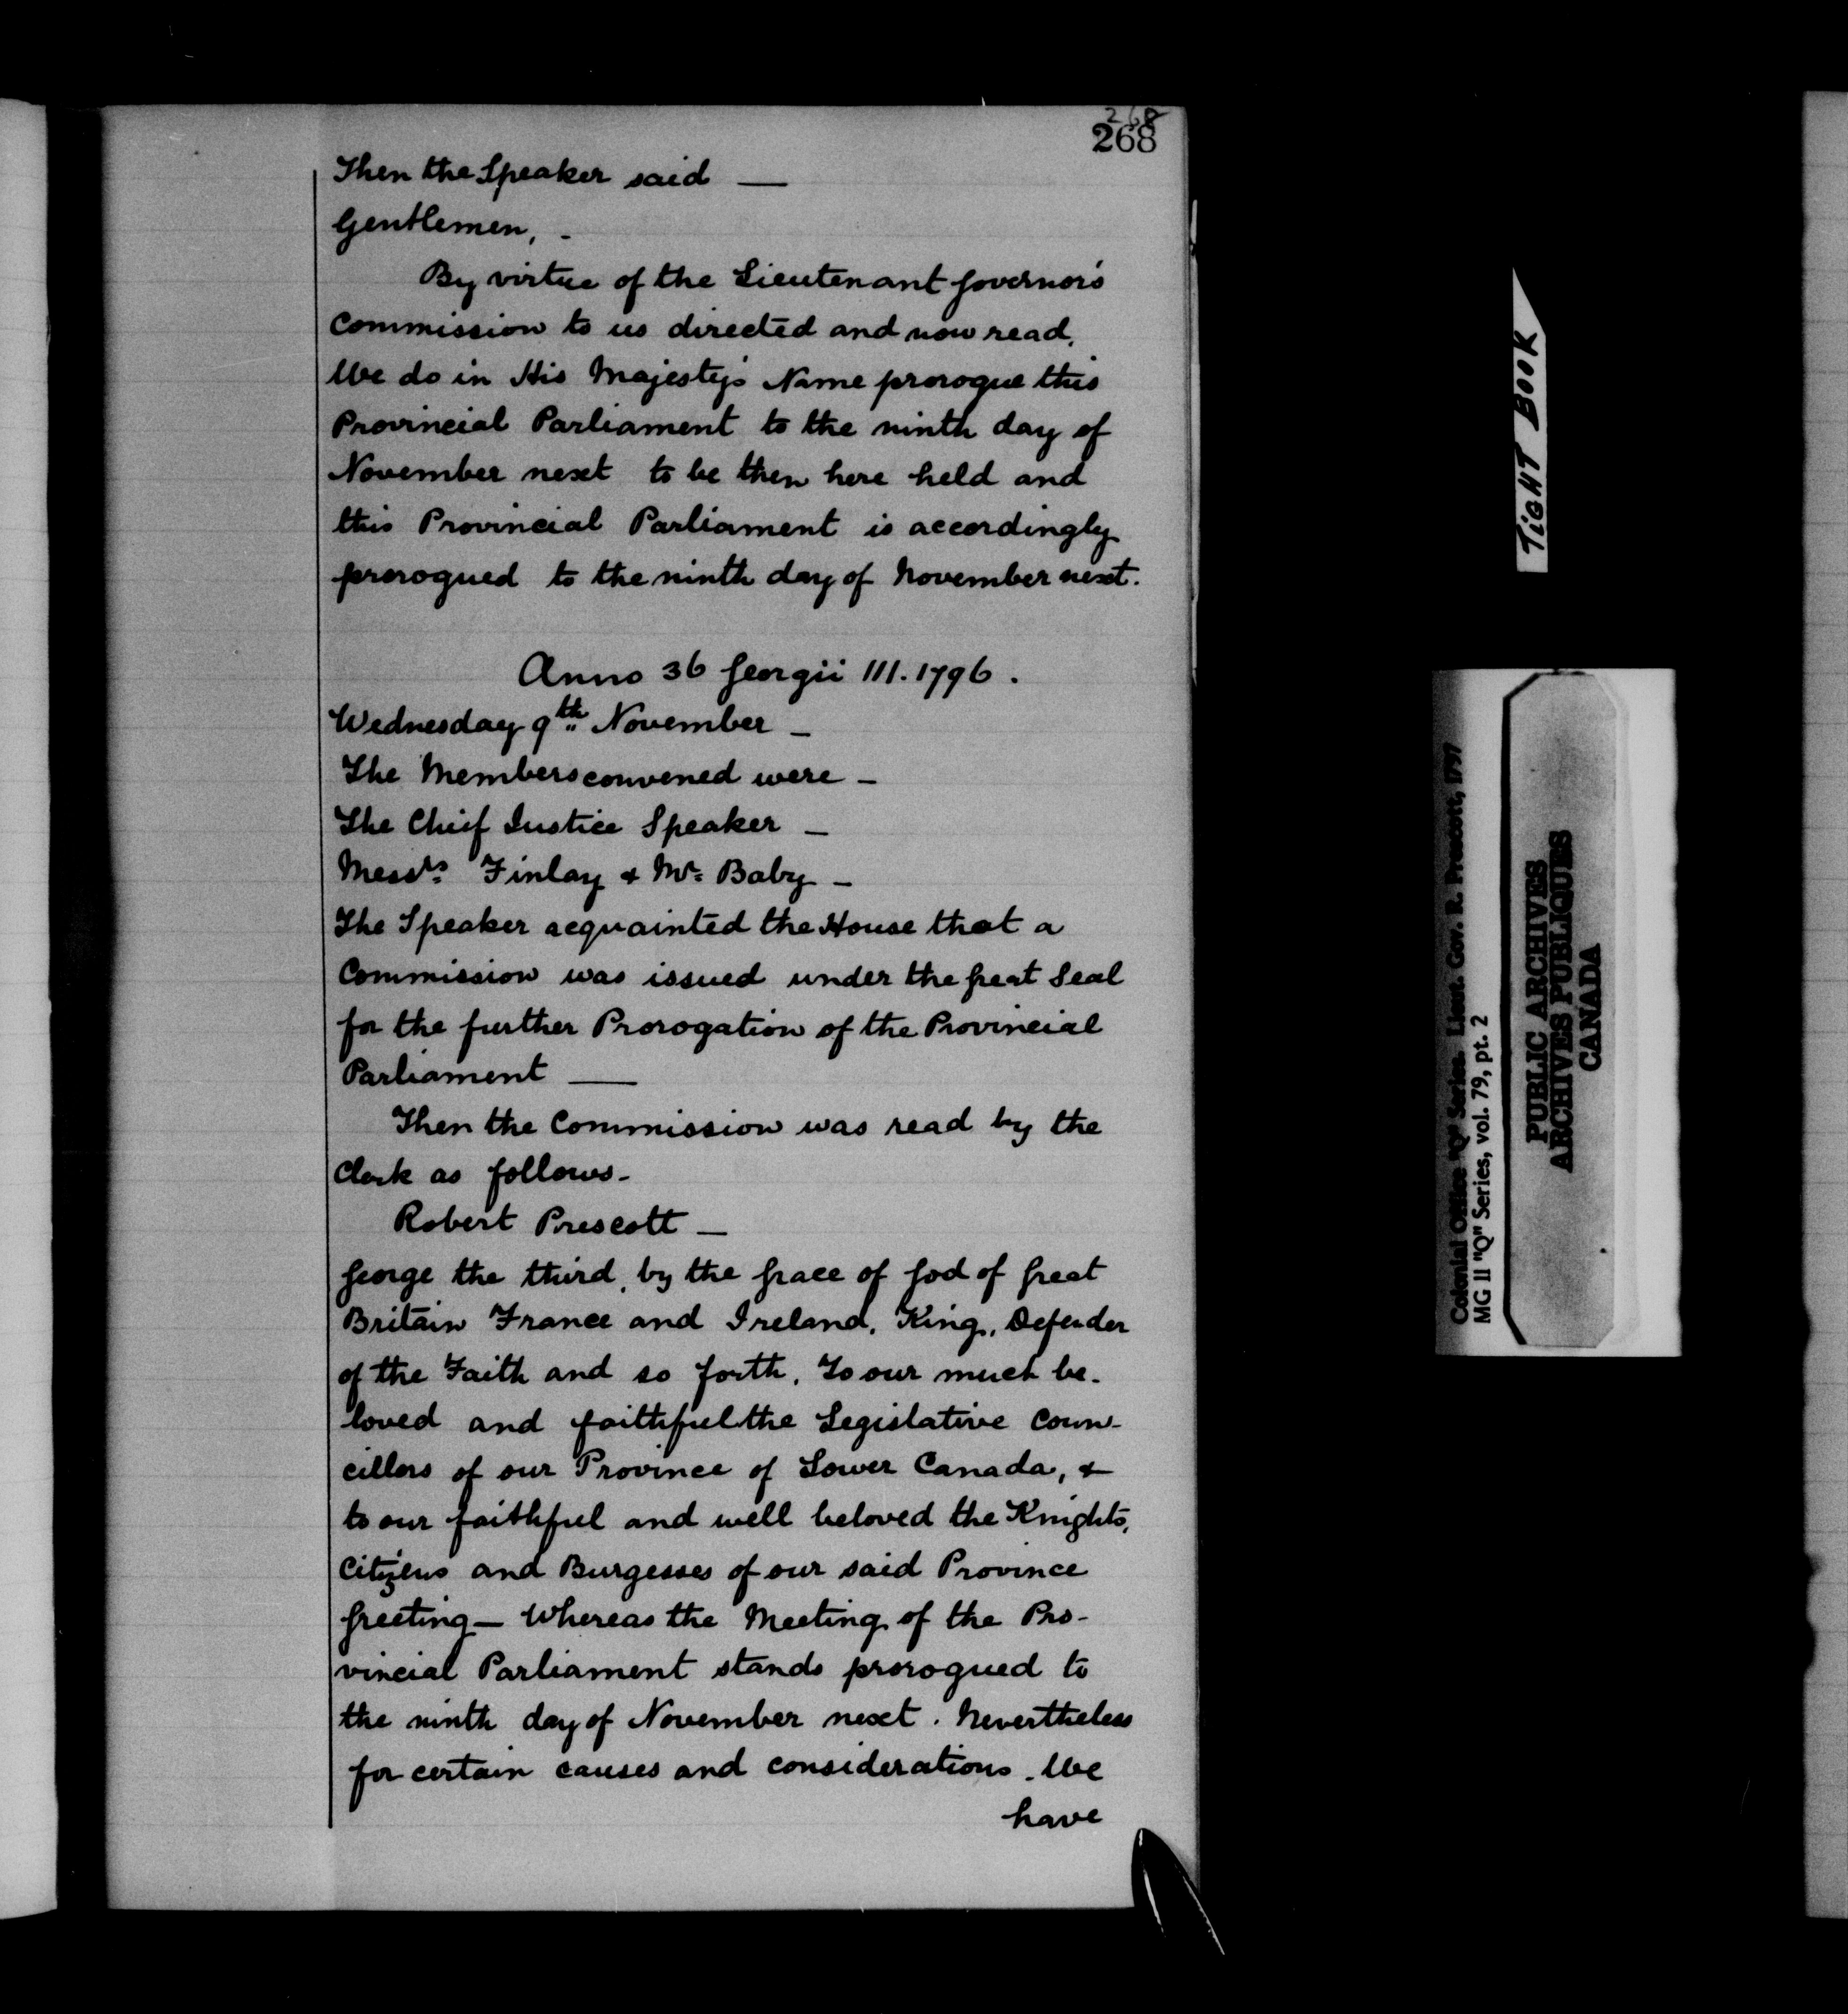 268
268
Then the Speaker said —
Gentlemen, -
By virtue of the Lieutenant Governor's
Commission to us directed and now read,
We do in His Majesty's Name prorogue this
Provincial Parliament to the ninth day of
November next to be then here held and
this Provincial Parliament is accordingly
prorogued to the ninth day of November next.
Anno 36 Georgii III. 1796.
Wednesday 9th November -
The Members convened were -
The Chief Justice Speaker -
Messrs Finlay & Mr Baby -
The Speaker acquainted the House that a
Commission was issued under the Great Seal
for the further Prorogation of the Provincial
Parliament —
Then the Commission was read by the
Clerk as follows -
Robert Prescott -
George the third, by the Grace of God of Great
Britain France and Ireland, King, Defender
of the Faith and so forth. To our much be-
loved and faithful the Legislative Coun-
cillors of our Province of Lower Canada, &
to our faithful and well beloved the Knights,
Citizens and Burgesses of our said Province
Greeting - Whereas the Meeting of the Pro-
vincial Parliament stands prorogued to
the ninth day of November next. Nevertheless
for certain causes and considerations. We
have
TIGHT BOOK
Colonial Office "Q" Series. Lieut. Gov. R. Prescott, 1797
MG 11 "Q" Series, vol. 79, pt. 2
PUBLIC ARCHIVES
ARCHIVES PUBLIQUES
CANADA